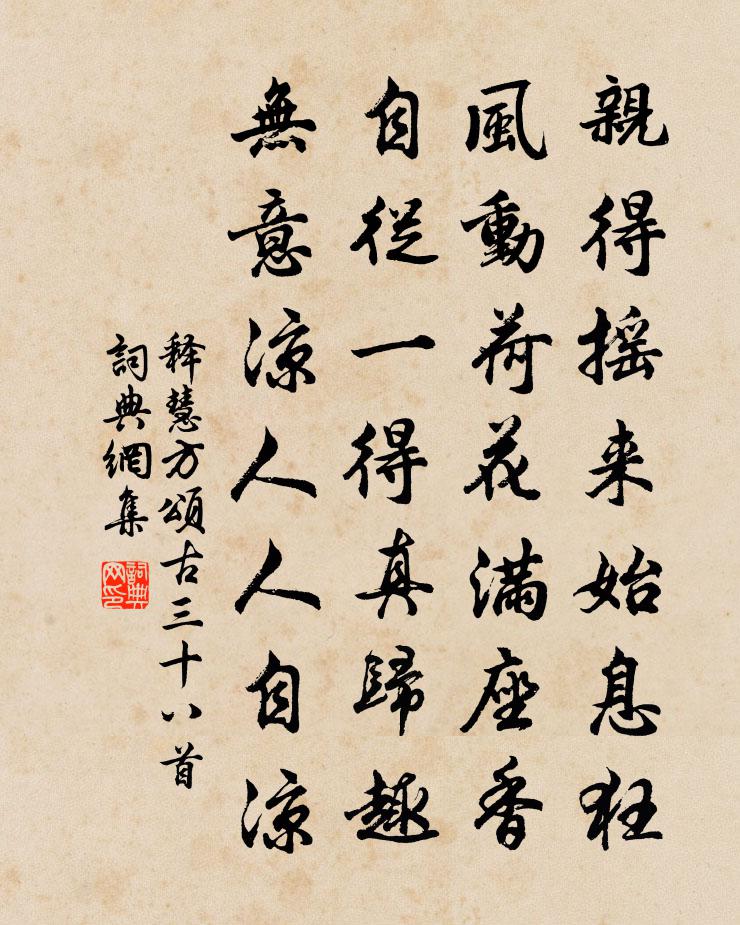 親得摇来始息狂
風動荷花满座香
自從一得真歸趣
無意凉人人自凉
释慧方頌古三十八首
詞典網集
詞典網印